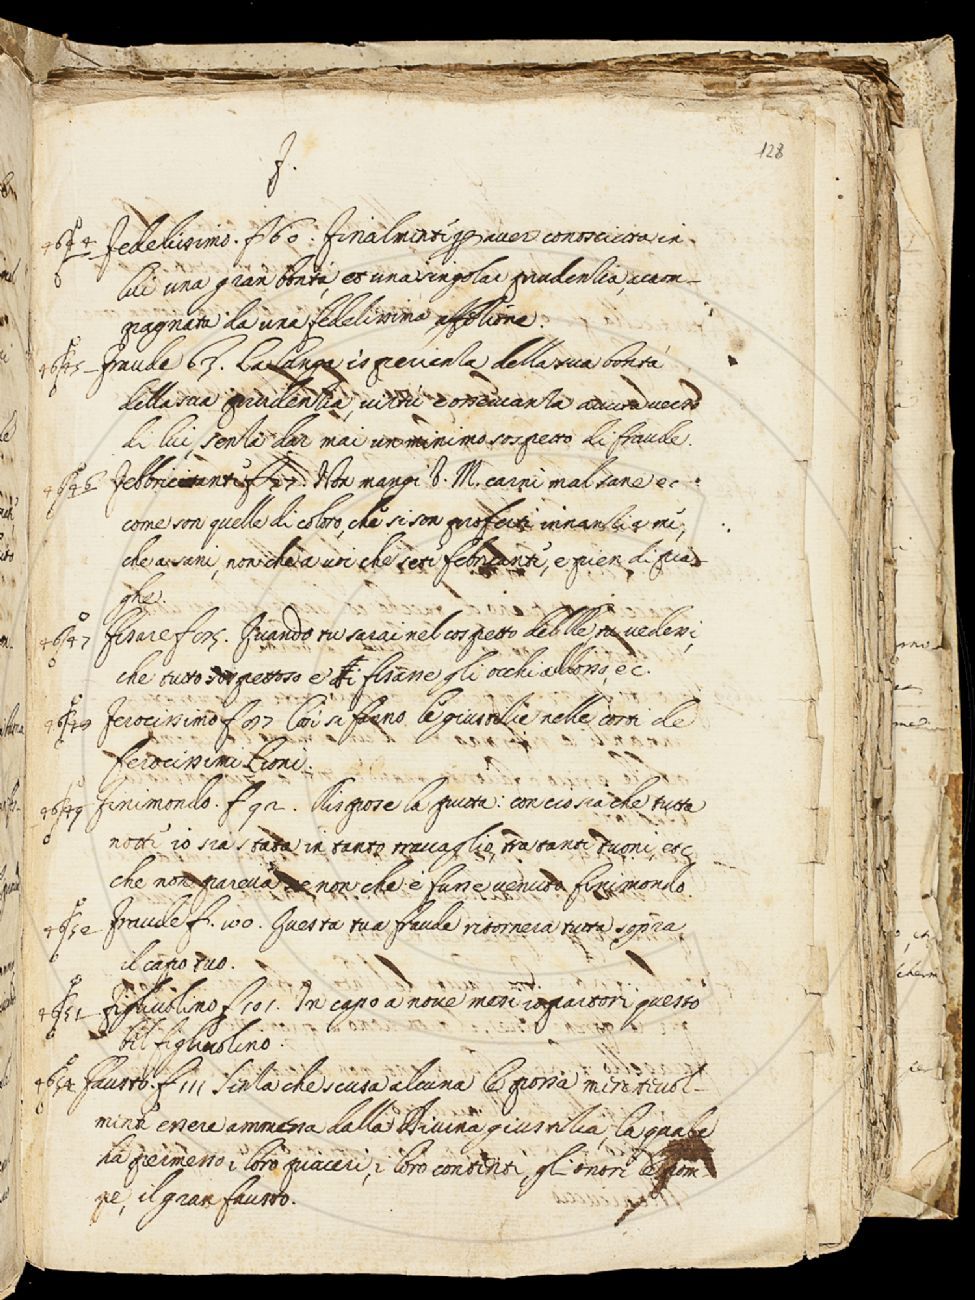 128
F.
Fedelissimo. f 60. Finalmente p aver conosciuta in
lui una gran bontà, et una singolar prudentia, acom-
pagnata da una fedelissima affetione.
Fraude 63. La lunga isperienta della sua bontà
della sua prudentia, virtù e
di lui, senta dar mai un minimo sospetto di fraude.
Febbricitante f 87. Non mangi V. M. carni mal sane ec
come son quelle di coloro, che si son proferti innanti a me,
che a sani, non che a voi che sete febricante, e pien di pia-
ghe.
fisare f 95. Quando tu sarai nel cospetto del Re tu vederai,
che tutto sospettoso e ti fisarae gli occhi adosso, ec.
Ferocissimo f 97 Cosi si fanno le giustitie nelle corti de
ferocissimi Lioni.
Finimondo. f 92. Rispose la putta: conciosia che tutta
notte io sia stata in tanto travaglio, tra tanti tuoni, etc
che non pareva se non che e' fusse venuto finimondo.
Fraude f. 100. Questa tua fraude ritornera tutta sopra
il capo tuo.
Figliuolino f 101. In capo a nove mesi io partori questo
bel figliuolino.
Fausto. f 111 Senta che scusa alcuna le possa meritevol-
mente essere ammessa dalla Divina giustitia, la quale
ha permesso i loro piaceri, i loro contenti, gl' onori le pom-
pe, il gran fausto.